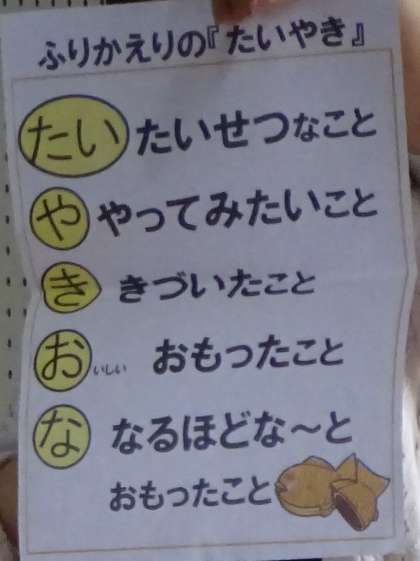 ふりかえりの『たいやき』
たい たいせつなこと
や やってみたいこと
き きづいたこと
お いしい おもったこと
な なるほどな〜と
おもったこと